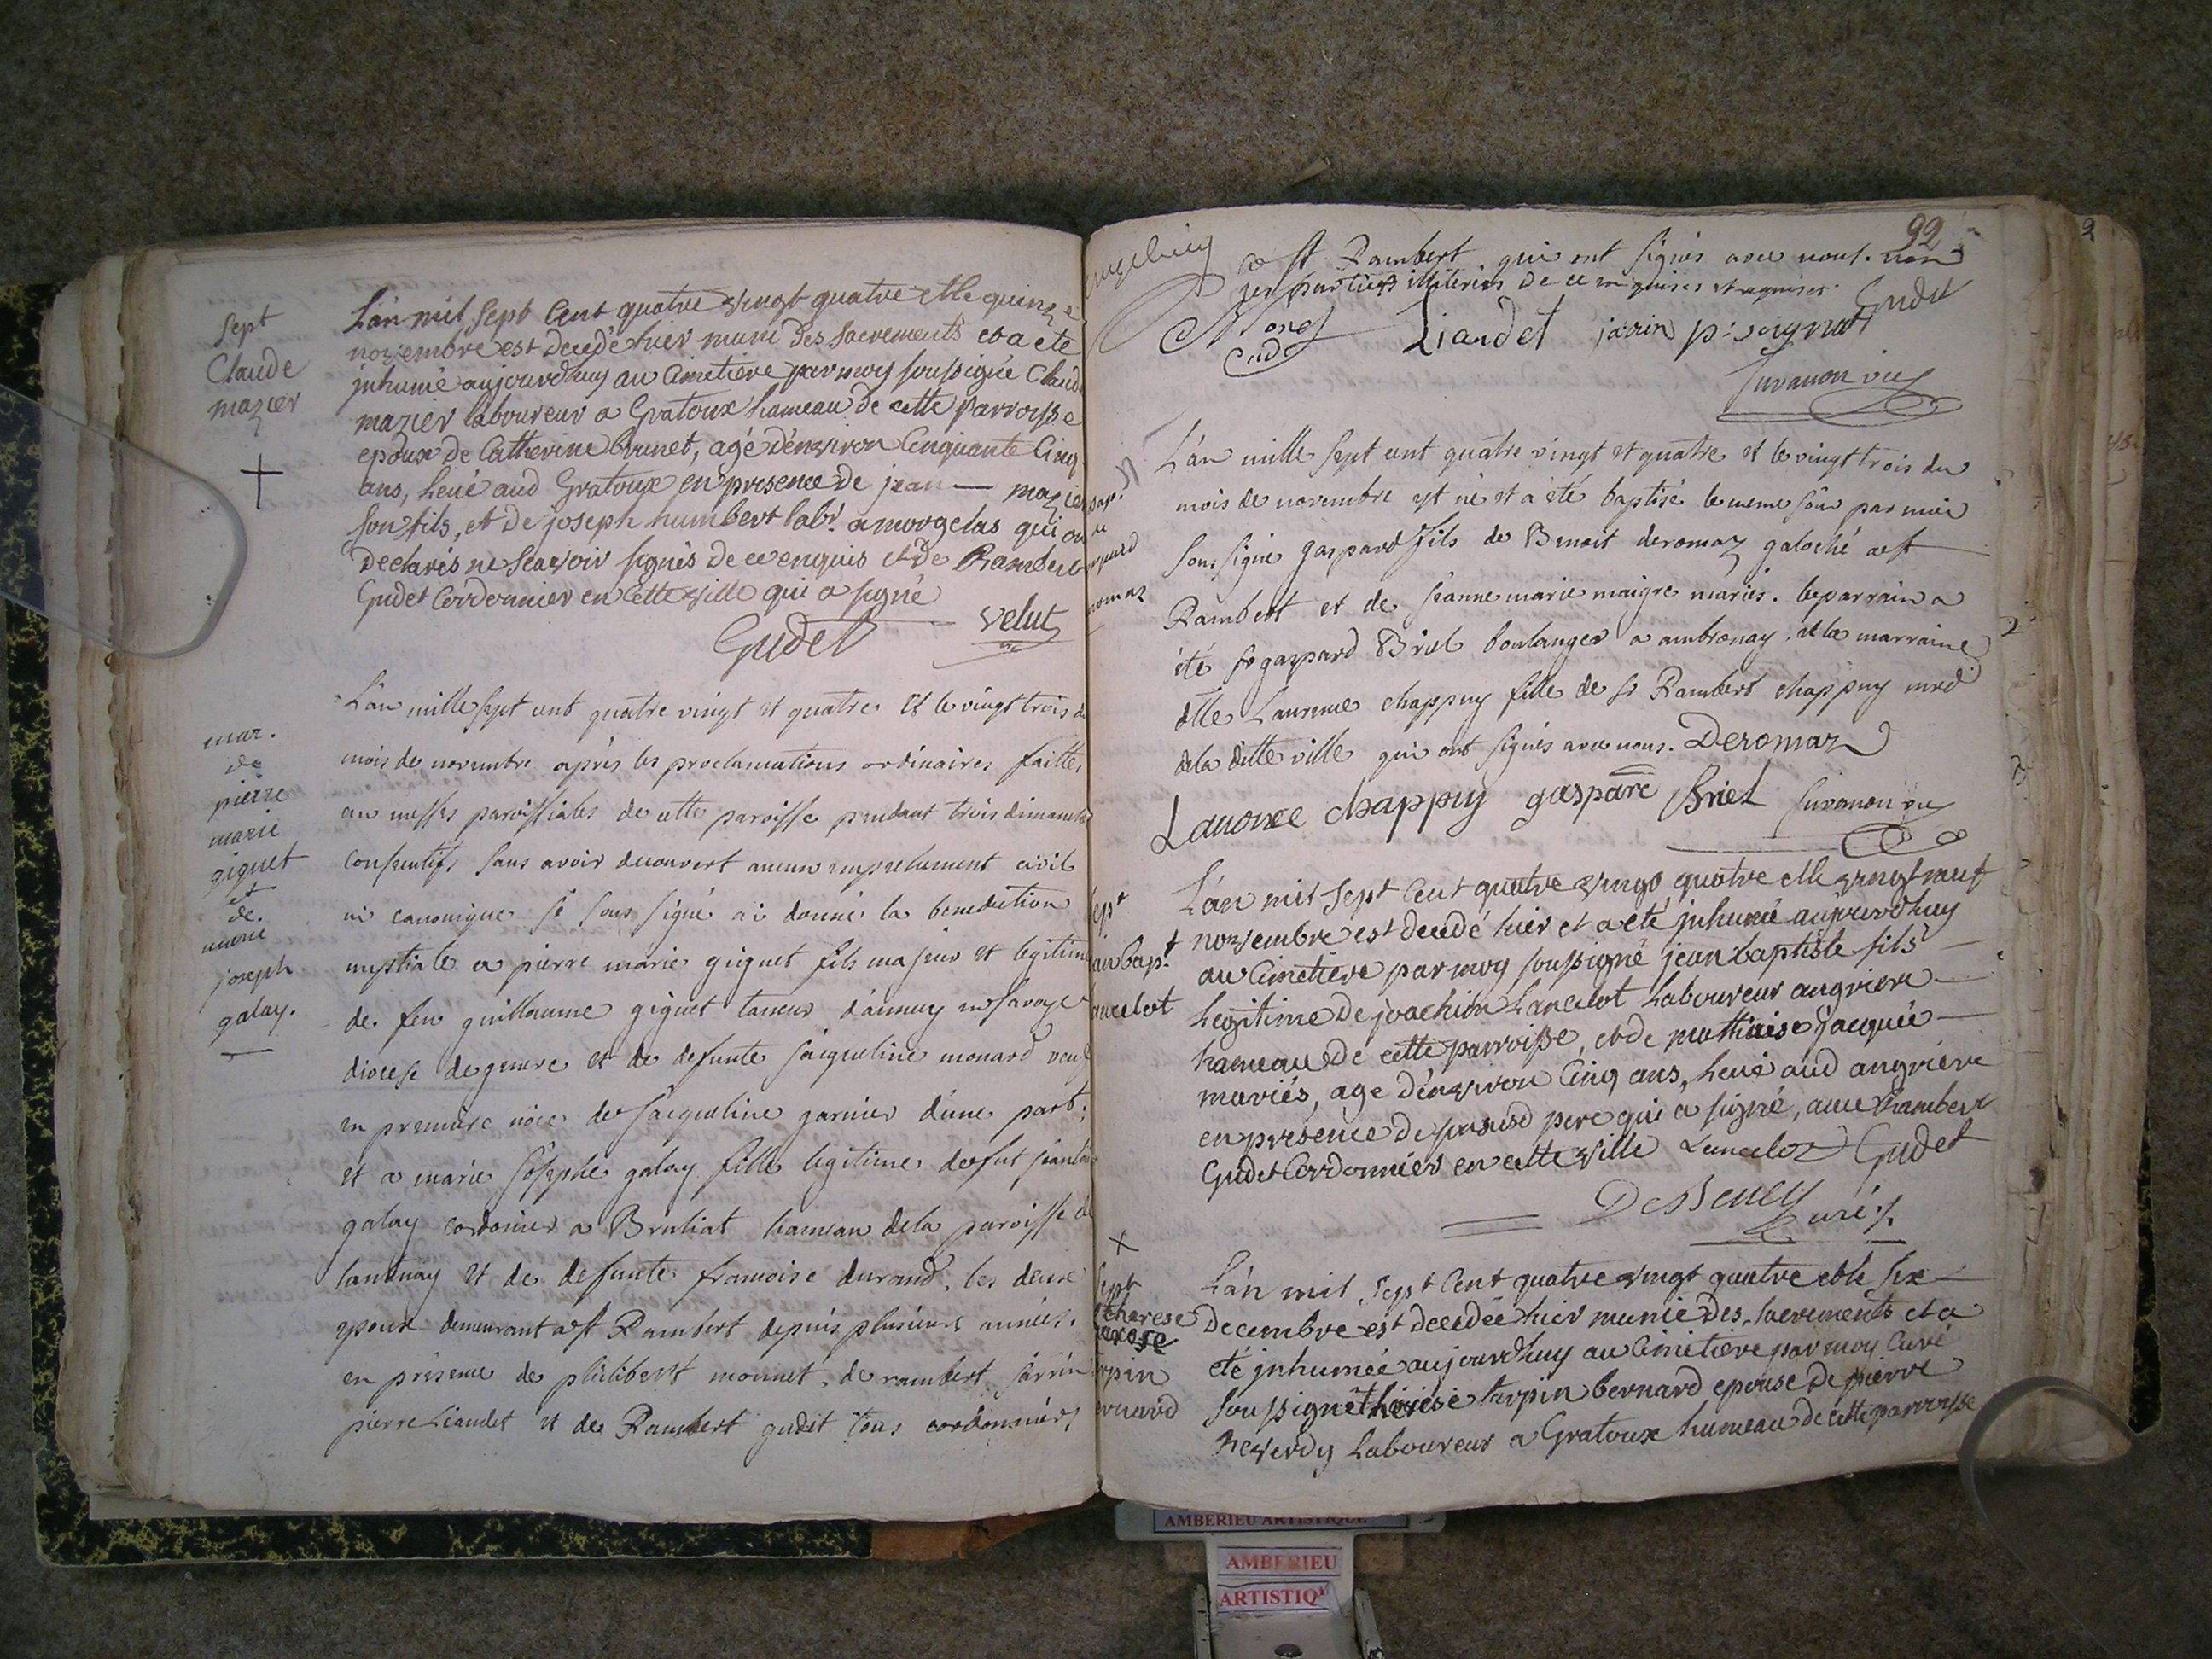 Sept
Claude
mazier
L'an mil sept cent quatre vingt quatre et le quinze
novembre est decedé hier muni des sacrements et a eté
inhumé aujourdhuy au Cimetiere par moy soussigné Claude
mazier laboureur a Gratoux hameau de cette parroisse
epoux de Catherine Brunet, agé d'environ Cinquante Cinq
ans, levé aud Gratoux en presence de jean — mazier
son fils, et de joseph humbert labr. a morgelas qui on
declarés ne scavoir signés de ce enquis et de Rambert
Gudet Cordonnier en cette ville qui a signé
Gudet velut
mar.
de
pierre
marie
giguet
et
de.
marie
joseph
galay.
L'an mille sept cent quatre vingt et quatre et le vingt trois du
mois de novembre après les proclamations ordinaires faittes
au messes paroissiales de cette paroisse pendant trois dimanches
consecutifs sans avoir decouvert aucun empechement civil
ni canonique je sous signé ai donné la benediction
nuptiale a pierre marie giguet fils majeur et legitime
de feu guillaume giguet taneur d'annecy en savoye
diocese de geneve et de defunte jaiqueline monard veuf
en premiere noce de jacqueline garnier d'une part;
et a marie josephe galay fille legitime de fut jean
galay cordonier a Brenliat hameau de la paroisse de
lantenay et de defunte francoise durand. les deux
epoux demeurant a st Rambert depuis plusieurs années.
en presence de philibert monnet, de rambert jarrin
pierre Liaudet et de Rambert gudet tous cordonniers
92
a st Rambert qui ont signés avec nous. non
les parties illiterées de ce enquises et requises.
Gudet
Liaudet jarin p: soignat
Juvanon vic
L'an mille sept cent quatre vingt et quatre et le vingt trois du
mois de novembre est né et a été baptisé le meme jour par moi
sous signé gaspard fils de Benoit deromaz galoché a st
Rambert et de jeanne marie maigre mariés. le parrain a
été sr gaspard Briel boulanger a ambronay. et la marraine
dlle Laurence chappuy fille de sr Rambert chappuy md
de la ditte ville qui ont signés avec nous. Deromaz
Lauonce chappuy gaspare Briel Juvanon vic
Sept
jean bap.t
lancelot
L'an mil sept cent quatre vingt quatre et le vingt neuf
novembre est decedé hier et a eté inhumé aujourdhuy
au Cimetiere par moy soussigné jean baptiste fils —
Legitime de joachim Lancelot Laboureur angriere —
hameau de cette parroisse, et de mathiaise jacquié —
mariés, agé d'environ Cinq ans, Levé aud angriére
en presence de susd pere qui a signé, avec Rambert
Gudet Cordonnier en cette ville Lancelot Gudet
Desseney
Curé
Sept
therese
terpin
bernard
L'an mil sept cent quatre vingt quatre et le six —
Decembre est decedée hier munie des sacrements et a
eté inhumée aujourdhuy au Cimetiere par moy Curé
soussigné thérésé terpin bernard epouse de pierre
Reverdy Laboureur a Gratoux hameau de cette parroisse
AMBERIEU ARTISTIQUE
AMBERIEU
ARTISTIQ